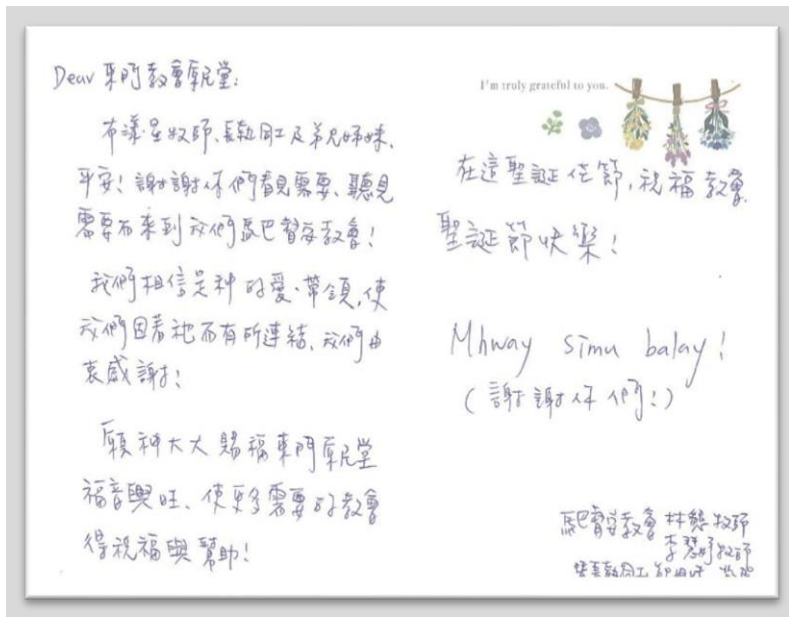 Dear 東門教會厚尼堂:
布漾·星牧師、長執同工及弟兄姊妹、
平安! 謝謝你們看見需要、聽見
需要而來到我們馬巴督安教會!
我們相信是神的愛、帶領,使
我們因著祂而有所連結、我們由
衷感謝!
願神大大賜福東門厚尼堂
福音興旺、使更多需要的教會
得祝福與幫助!
I'm truly grateful to you.
在這聖誕佳節,祝福教會
聖誕節快樂!
Mhway simu balay!
(謝謝你們!)
教會 林 牧師
李 牧師